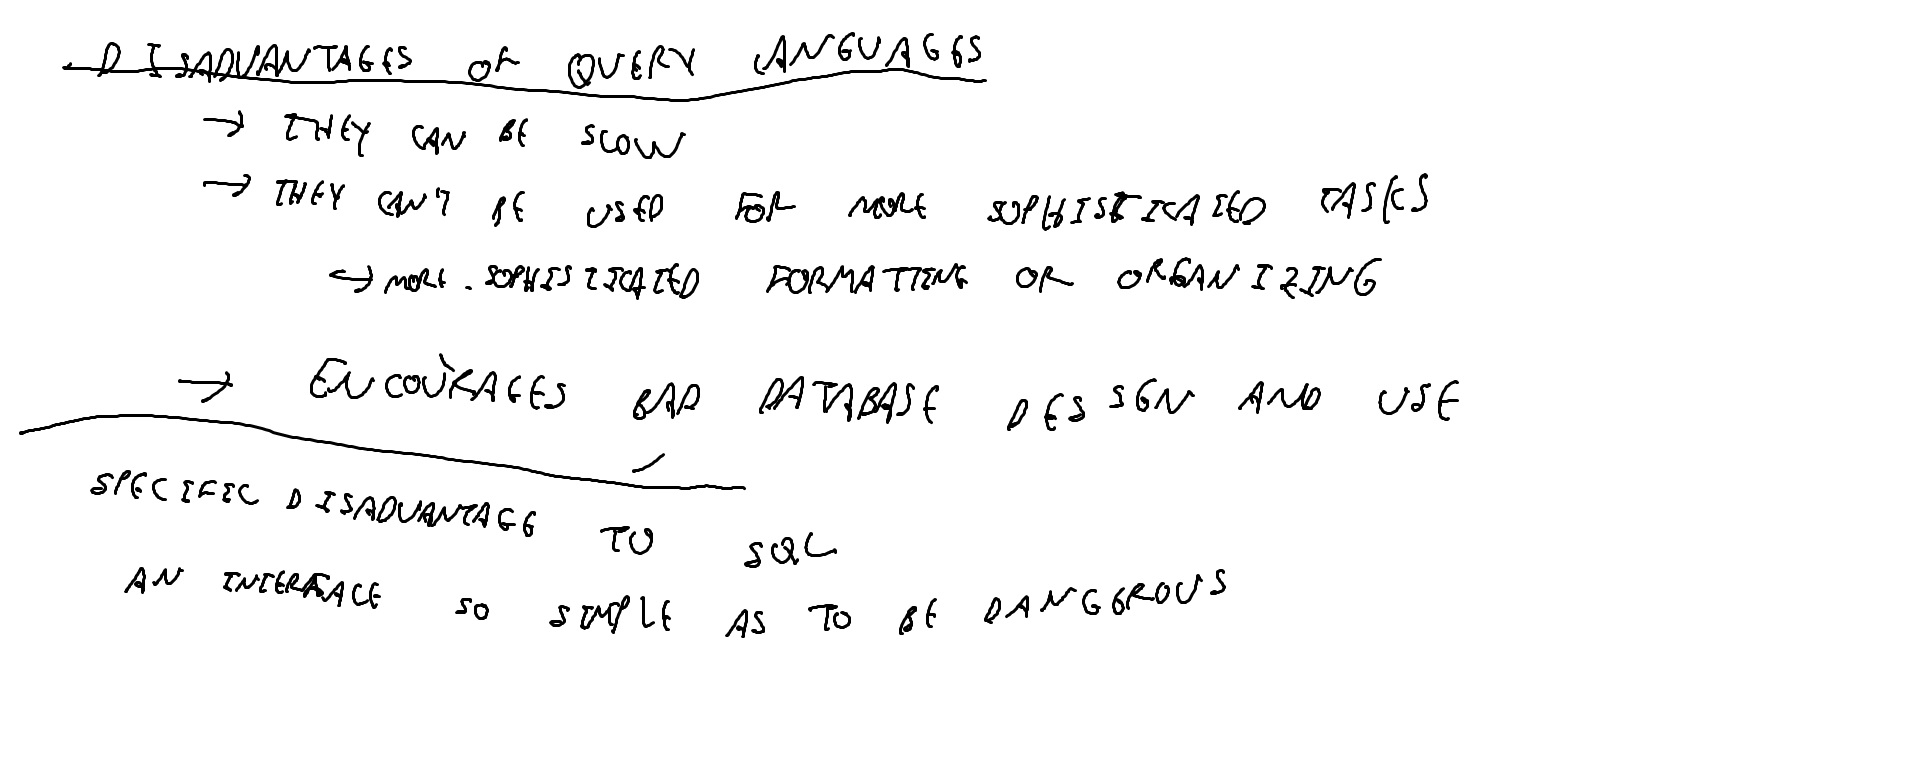 DISADVANTAGES OF QUERY LANGUAGES
→ THEY CAN BE SLOW
→ THEY CAN'T BE USED FOR MORE SOPHISTICATED TASKS
↪ MORE SOPHISTICATED FORMATTING OR ORGANIZING
→ ENCOURAGES BAD DATABASE DESIGN AND USE
SPECIFIC DISADVANTAGE TO SQL
AN INTERFACE SO SIMPLE AS TO BE DANGEROUS